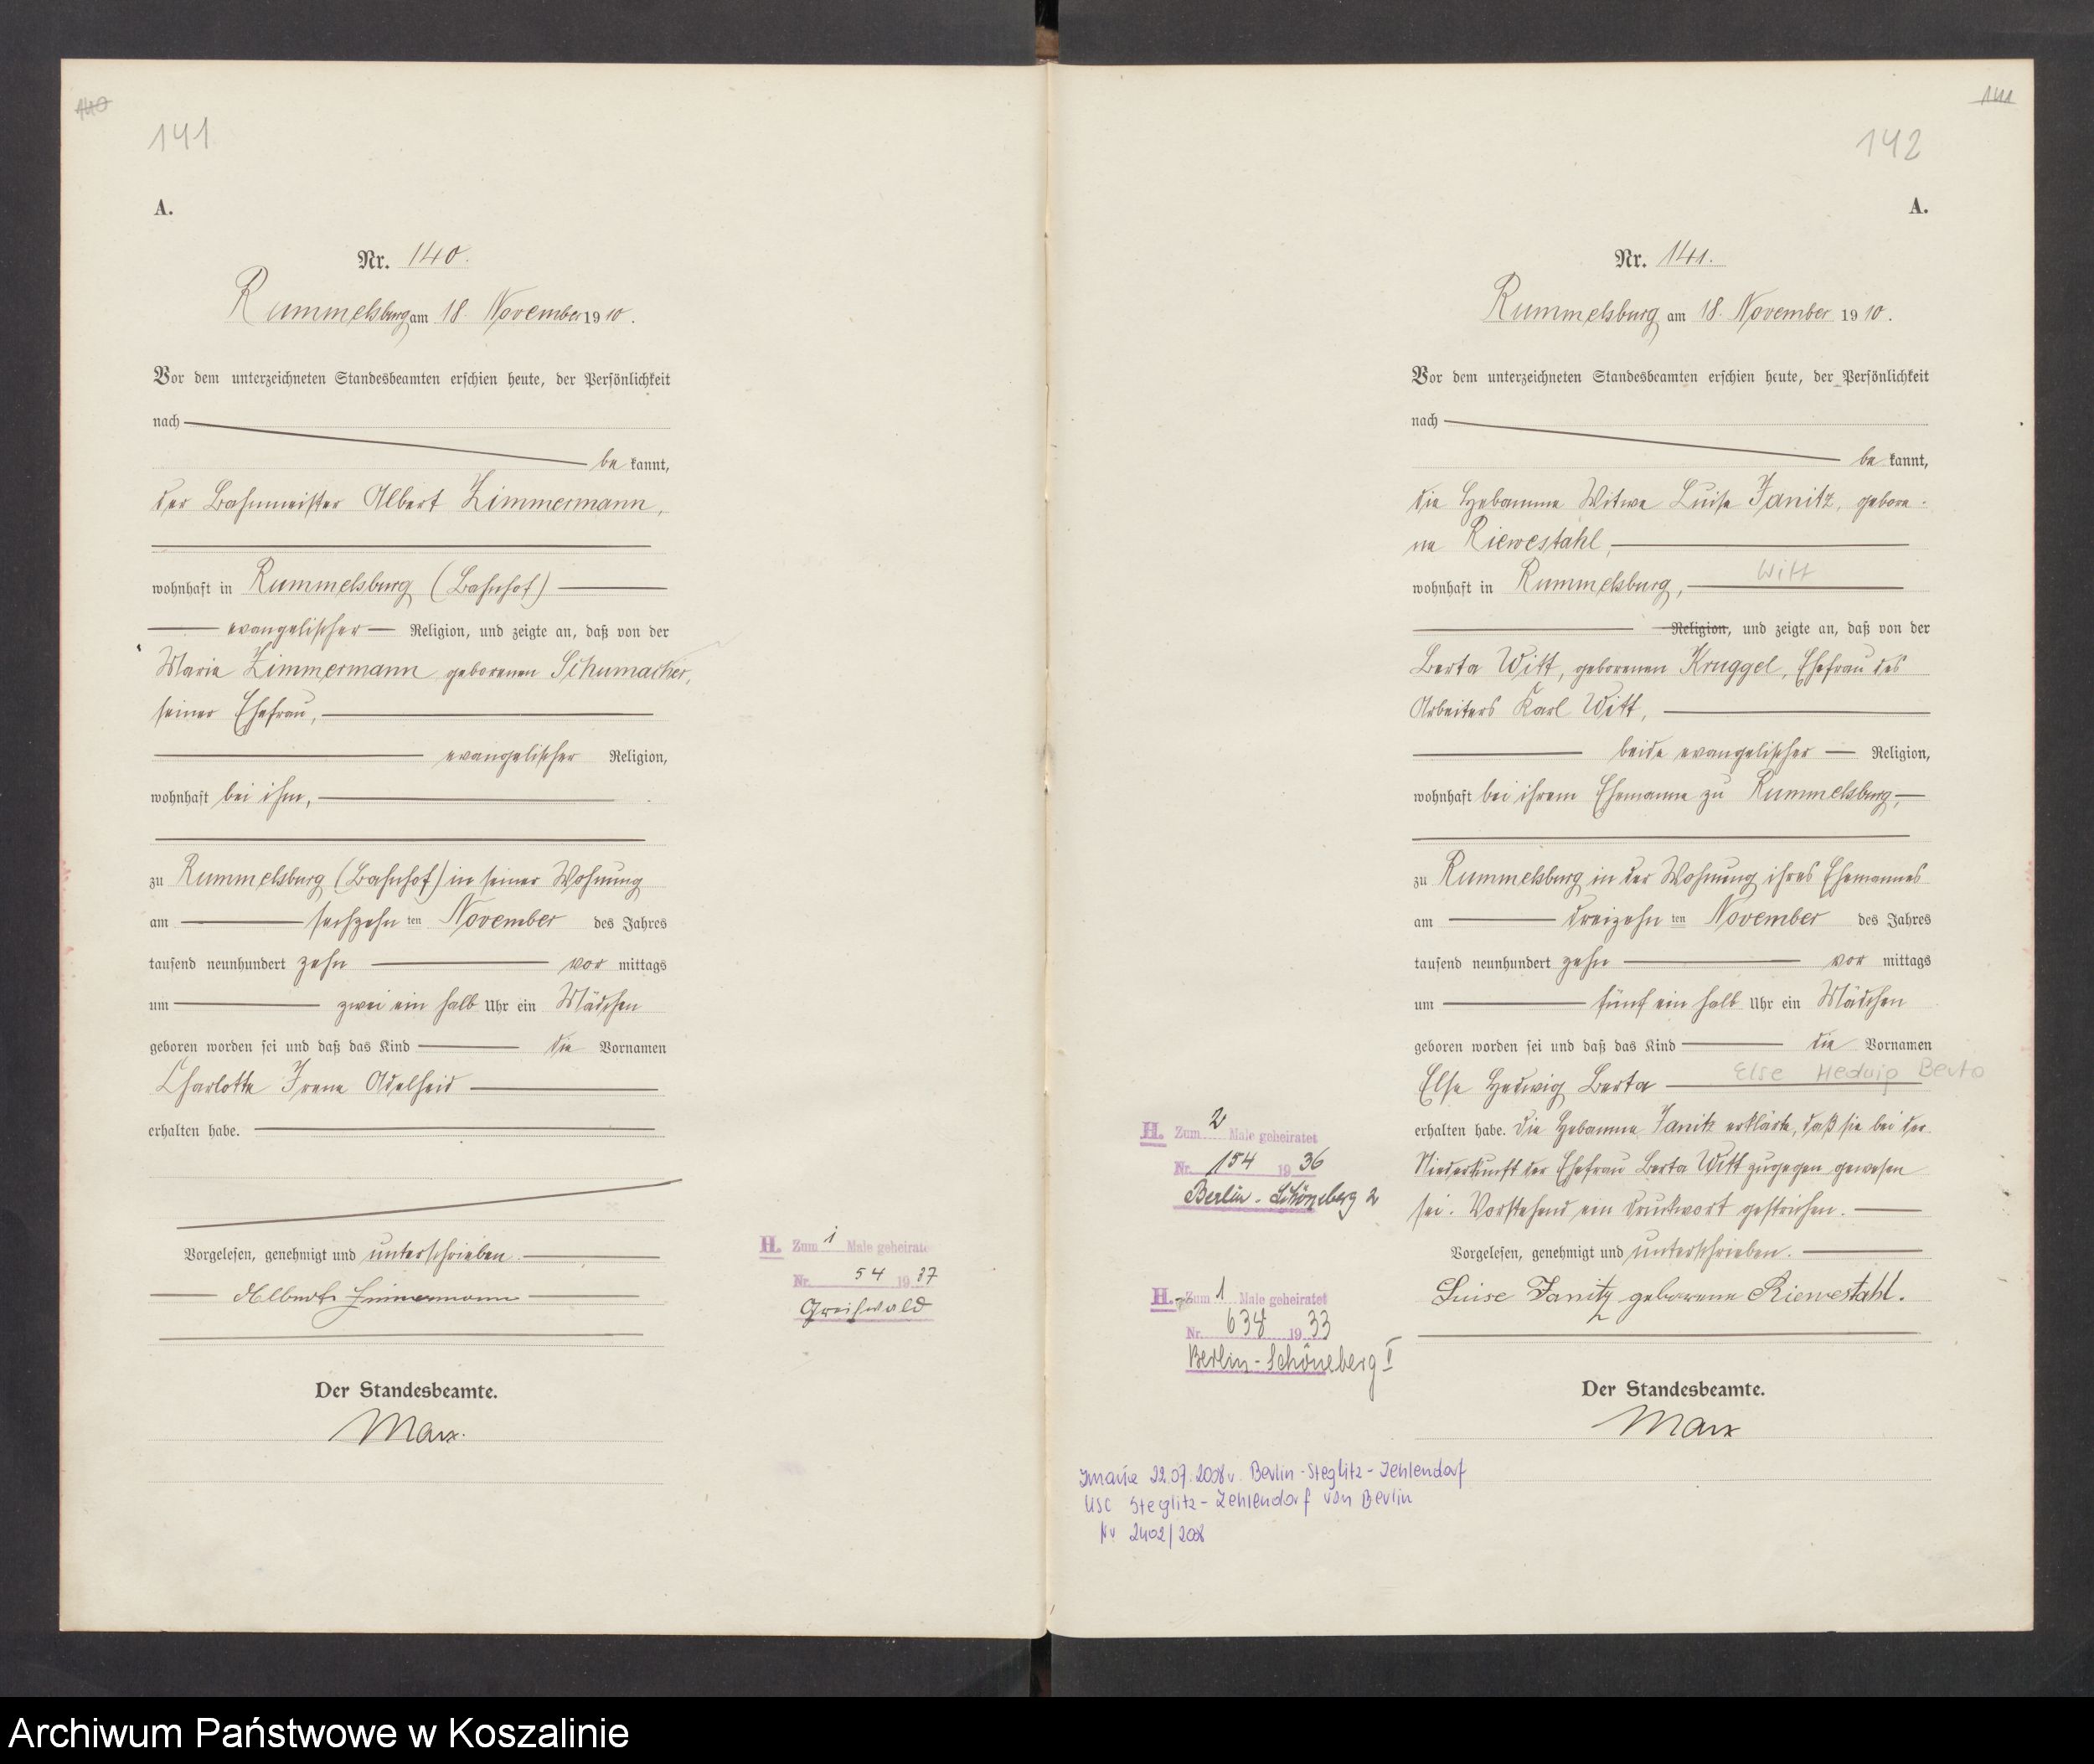 140
141
A.
Nr. 140.
Rummelsburg am 18. November 1910.
Vor dem unterzeichneten Standesbeamten erschien heute, der Persönlichkeit
nach
be kannt,
der Bahnmeister Albert Zimmermann,
wohnhaft in Rummelsburg (Bahnhof)
evangelischer Religion, und zeigte an, daß von der
Maria Zimmermann geborenen Schumacher,
seiner Ehefrau,
evangelischer Religion,
wohnhaft bei ihm,
zu Rummelsburg (Bahnhof) in seiner Wohnung
am sechzehn ten November des Jahres
tausend neunhundert zehn vor mittags
um zwei ein halb Uhr ein Mädchen
geboren worden sei und daß das Kind die Vornamen
Charlotte Irene Adelheid
erhalten habe.
Vorgelesen, genehmigt und unterschrieben.
Albert Zimmermann
Der Standesbeamte.
Marx.
H. Zum 1 Male geheiratet
Nr. 54 1937
Greifswald
141
142
A.
Nr. 141.
Rummelsburg am 18. November 1910.
Vor dem unterzeichneten Standesbeamten erschien heute, der Persönlichkeit
nach
be kannt,
die Hebamme Witwe Luise Janitz, gebore-
ne Riewestahl,
Witt
wohnhaft in Rummelsburg,
Religion, und zeigte an, daß von der
Berta Witt, geborenen Kruggel, Ehefrau des
Arbeiters Karl Witt,
beide evangelischer Religion,
wohnhaft bei ihrem Ehemanne zu Rummelsburg,
zu Rummelsburg in der Wohnung ihres Ehemannes
am dreizehn ten November des Jahres
tausend neunhundert zehn vor mittags
um fünf ein halb Uhr ein Mädchen
geboren worden sei und daß das Kind die Vornamen
Else Hedwig Berta Else Hedwig Berta
erhalten habe. Die Hebamme Janitz erklärte, daß sie bei der
Niederkunft der Ehefrau Berta Witt zugegen gewesen
sei. Vorstehend ein Druckwort gestrichen.
Vorgelesen, genehmigt und unterschrieben.
Luise Janitz geborene Riewestahl.
Der Standesbeamte.
Marx
H. Zum 2 Male geheiratet
Nr. 154 1936
Berlin-Schöneberg 2
H. Zum 1 Male geheiratet
Nr. 638 1933
Berlin-Schöneberg II
Zmarła 22.07.2008 r. Berlin-Steglitz-Zehlendorf
USC Steglitz-Zehlendorf von Berlin
Nr 2402/2008
Archiwum Państwowe w Koszalinie